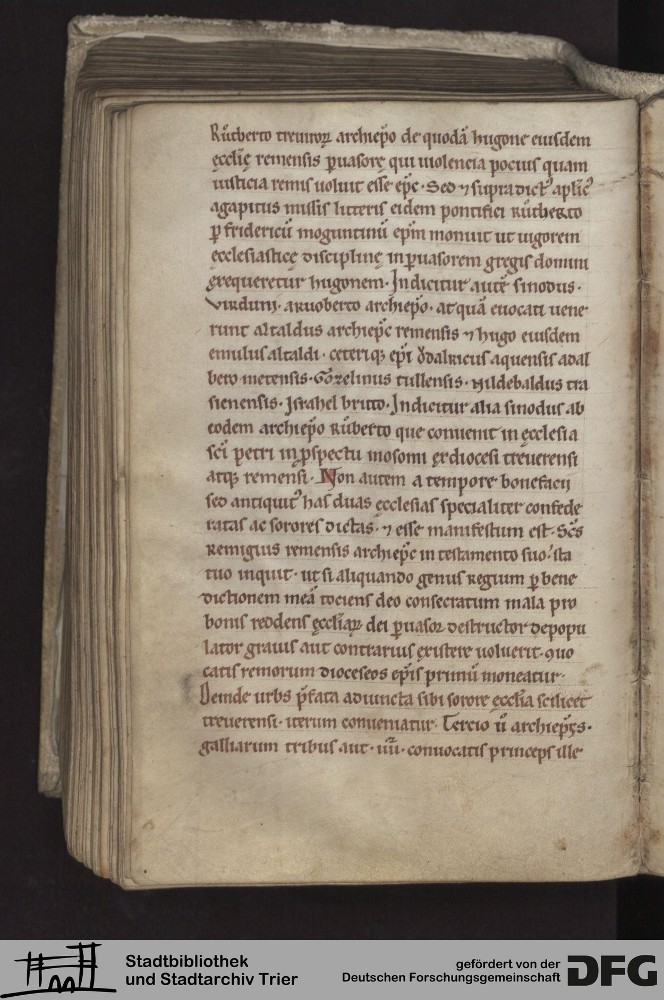 Růtberto treuiror̨ archiep̄o de quodā hugone eiusdem
ęcclię remensis ꝑuasore qui uiolencia pocius quam
iusticia remis uoluit esse ep̄c. Sed ⁊ supradict᷒ aplic᷒
agapitus missis litteris eidem pontifici Růtberto
ꝑ fridericū moguntinū ep̄m monuit ut uigorem
ecclesiasticę disciplinę in ꝑuasorem gregis domini
ęxequeretur hugonem. Indicitur autē sinodus.
Virduni. a Ruoberto archiep̄o. at quā euocati uene
runt altaldus archiep̄c remensis ⁊ hugo eiusdem
emulus altaldi. ceteriqꝫ ep̄i ǒdalricus aquensis adal
bero metensis. Gozelinus tullensis. Hildebaldus tra
sienensis. Israhel britto. Indicitur alia sinodus ab
eodem archiep̄o Růberto que conuenit in ęcclesia
sc̄i petri in ꝓspectu mosomi ex diocesi treuerensi
atqꝫ remensi. Non autem a tempore bonefacii
sed antiquit᷒ has duas ęcclesias specialiter confede
ratas ac sorores dictas. ⁊ esse manifestum est. Sc̄s
Remigius remensis archiep̄c in testamento suo. sta
tuo inquit. ut si aliquando genus Regium ꝑ bene
dictionem meā tociens deo consecratum mala pro
bonis reddens ęccliar̨ dei ꝑuasor destructor depopu
lator grauis aut contrarius ęxistere uoluerit. quo
catis remorum dioceseos ep̄is primū moneatur.
Deinde urbs p̄fata adiuncta sibi sorore ęcclia scilicet
treuerensi. iterum conueniatur. Tercio ů archiep̄is.
galliarum tribus aut. iiii. conuocatis princeps ille
Stadtbibliothek
und Stadtarchiv Trier
gefördert von der
Deutschen Forschungsgemeinschaft
DFG